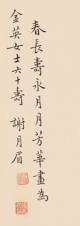 春長壽永月月芳華畫為
金英女士六十壽 謝月眉